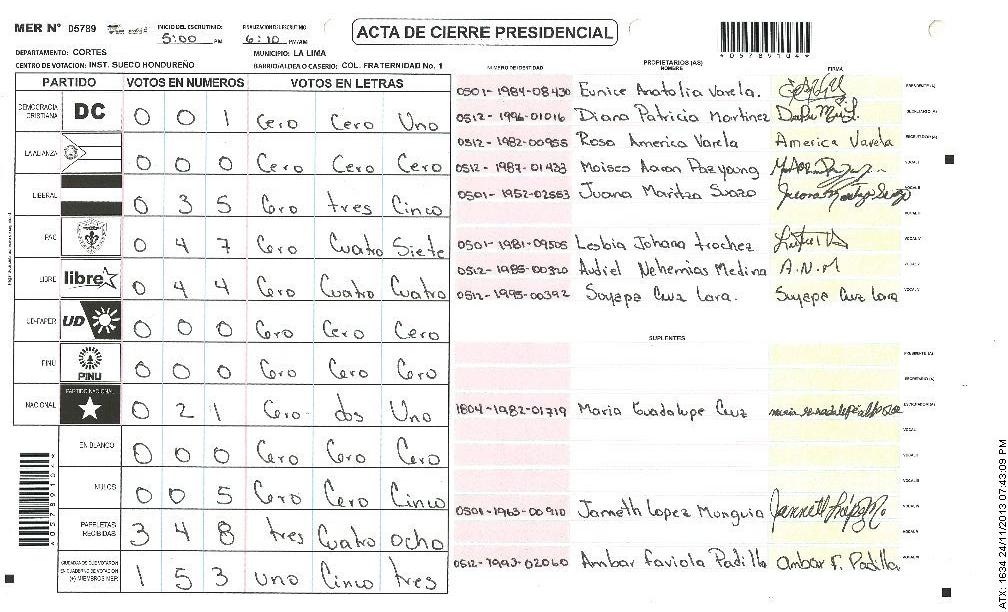 MER N° 05789 INICIO DEL ESCRUTINIO: 5:00 PM FINALIZACION DEL ESCRUTINIO 6:10 PM/AM
ACTA DE CIERRE PRESIDENCIAL
*05789104*
DEPARTAMENTO: CORTES MUNICIPIO: LA LIMA
CENTRO DE VOTACION: INST. SUECO HONDUREÑO BARRIO/ALDEA O CASERIO: COL. FRATERNIDAD No. 1
PARTIDO VOTOS EN NUMEROS VOTOS EN LETRAS
DEMOCRACIA CRISTIANA DC 0 0 1 Cero Cero Uno
LA ALIANZA 0 0 0 Cero Cero Cero
LIBERAL 0 3 5 Cero tres Cinco
PAC 0 4 7 Cero Cuatro Siete
LIBRE libre 0 4 4 Cero Cuatro Cuatro
UD-FAPER UD 0 0 0 Cero Cero Cero
PINU PINU 0 0 0 Cero Cero Cero
NACIONAL PARTIDO NACIONAL 0 2 1 Cero dos Uno
EN BLANCO 0 0 0 Cero Cero Cero
NULOS 0 0 5 Cero Cero Cinco
PAPELETAS RECIBIDAS 3 4 8 tres Cuatro ocho
CIUDADANOS QUE VOTARON EN CUADERNO DE VOTACION (+) MIEMBROS MER 1 5 3 uno Cinco tres
NUMERO DE IDENTIDAD PROPIETARIOS (AS) NOMBRE FIRMA
0501-1984-08430 Eunice Anatolia Varela. PRESIDENTE (A)
0512-1996-01016 Diana Patricia Martinez SECRETARIO (A)
0512-1982-00955 Rosa America Varela America Varela ESCRUTADOR (A)
0512-1987-01433 Moises Aaron Paz young VOCAL I
0501-1952-02563 Juana Maritza Suazo VOCAL II
VOCAL III
0501-1981-09505 Lesbia Johana trochez VOCAL IV
0512-1985-00320 Audiel Nehemias Medina A.N.M VOCAL V
0512-1995-00392 Suyapa Cruz Lara. Suyapa Cruz Lara VOCAL VI
SUPLENTES
PRESIDENTE (A)
SECRETARIO (A)
1804-1982-01719 Maria Guadalupe Cruz ESCRUTADOR (A)
VOCAL I
VOCAL II
VOCAL III
0501-1963-00910 Janneth Lopez Munguia VOCAL IV
VOCAL V
0512-1993-02060 Ambar faviola Padilla Ambar F. Padilla VOCAL VI
*05789104*
ATX: 1634 24/11/2013 07:43:09 PM